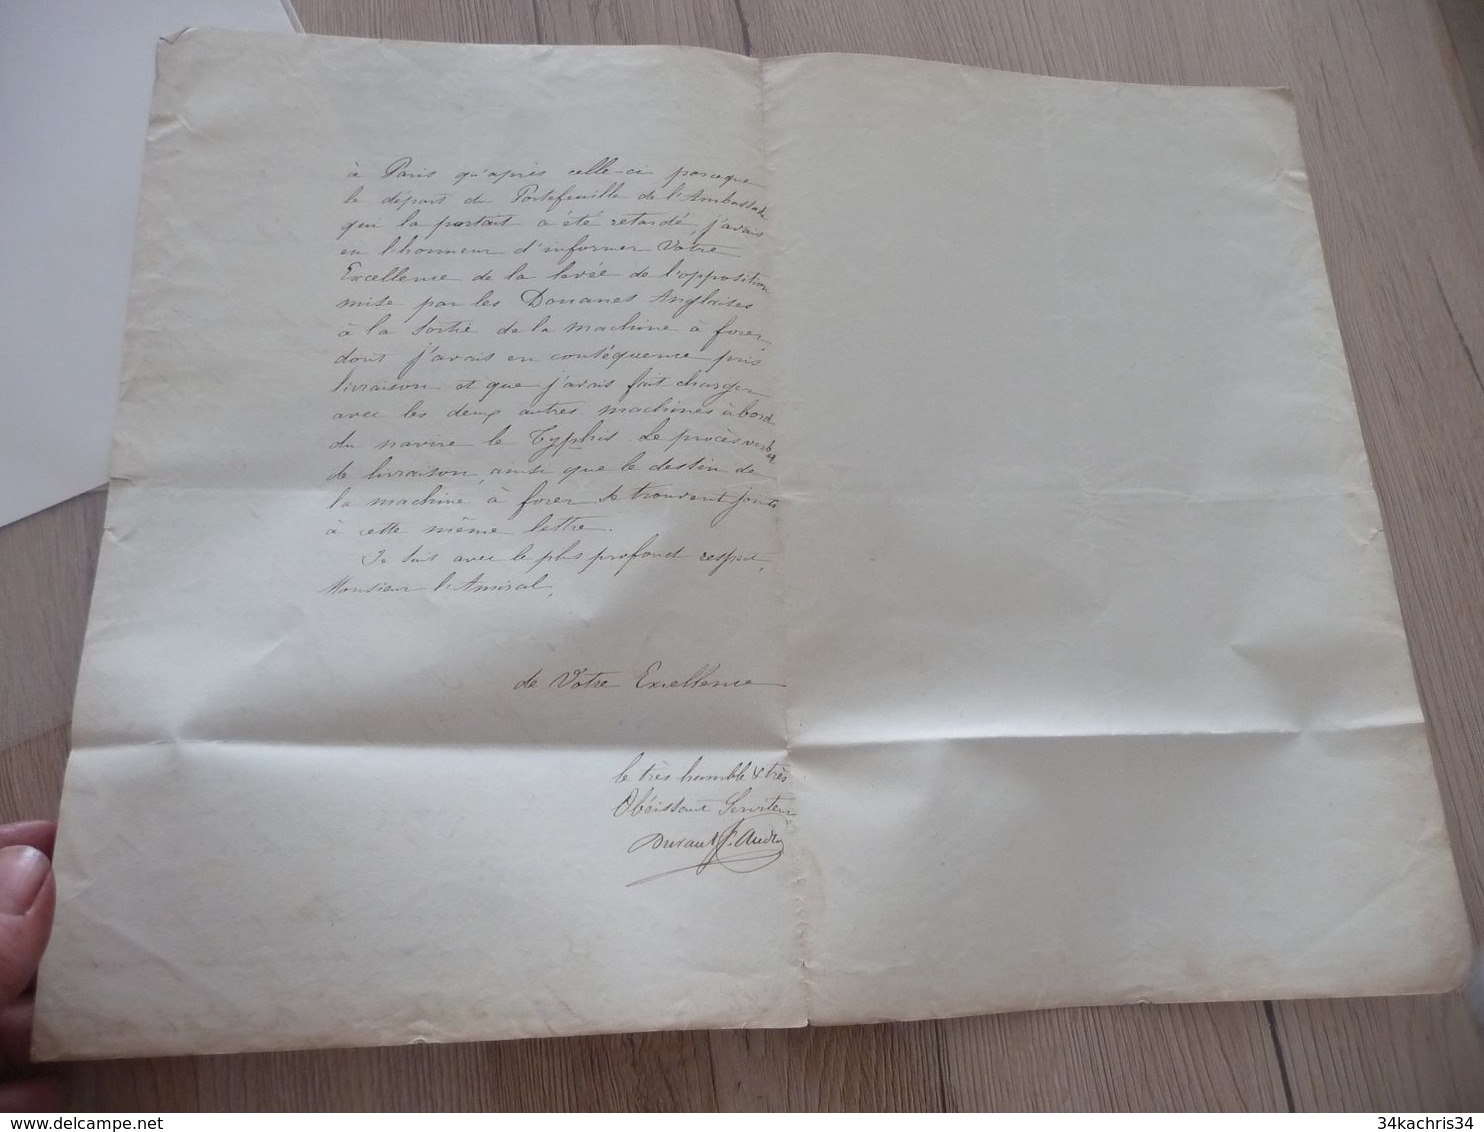 à Paris qu'après celle-ci parceque
le départ du Portefeuille de l'Ambassade
qui la portait a été retardé, j'avais
eu l'honneur d'informer Votre
Excellence de la levée de l'opposition
mise par les Douanes Anglaises
à la sortie de la machine à forer,
dont j'avais en conséquence pris
livraison et que j'avais fait charger
avec les deux autres machines à bord
du navire le Typhis. Le procès verbal
de livraison, ainsi que le dessin de
la machine à forer se trouvent joints
à cette même lettre.
Je suis avec le plus profond respect,
Monsieur l'Amiral,
de Votre Excellence
le très humble & très
Obéissant Serviteur
Durant St. André
34kachris34